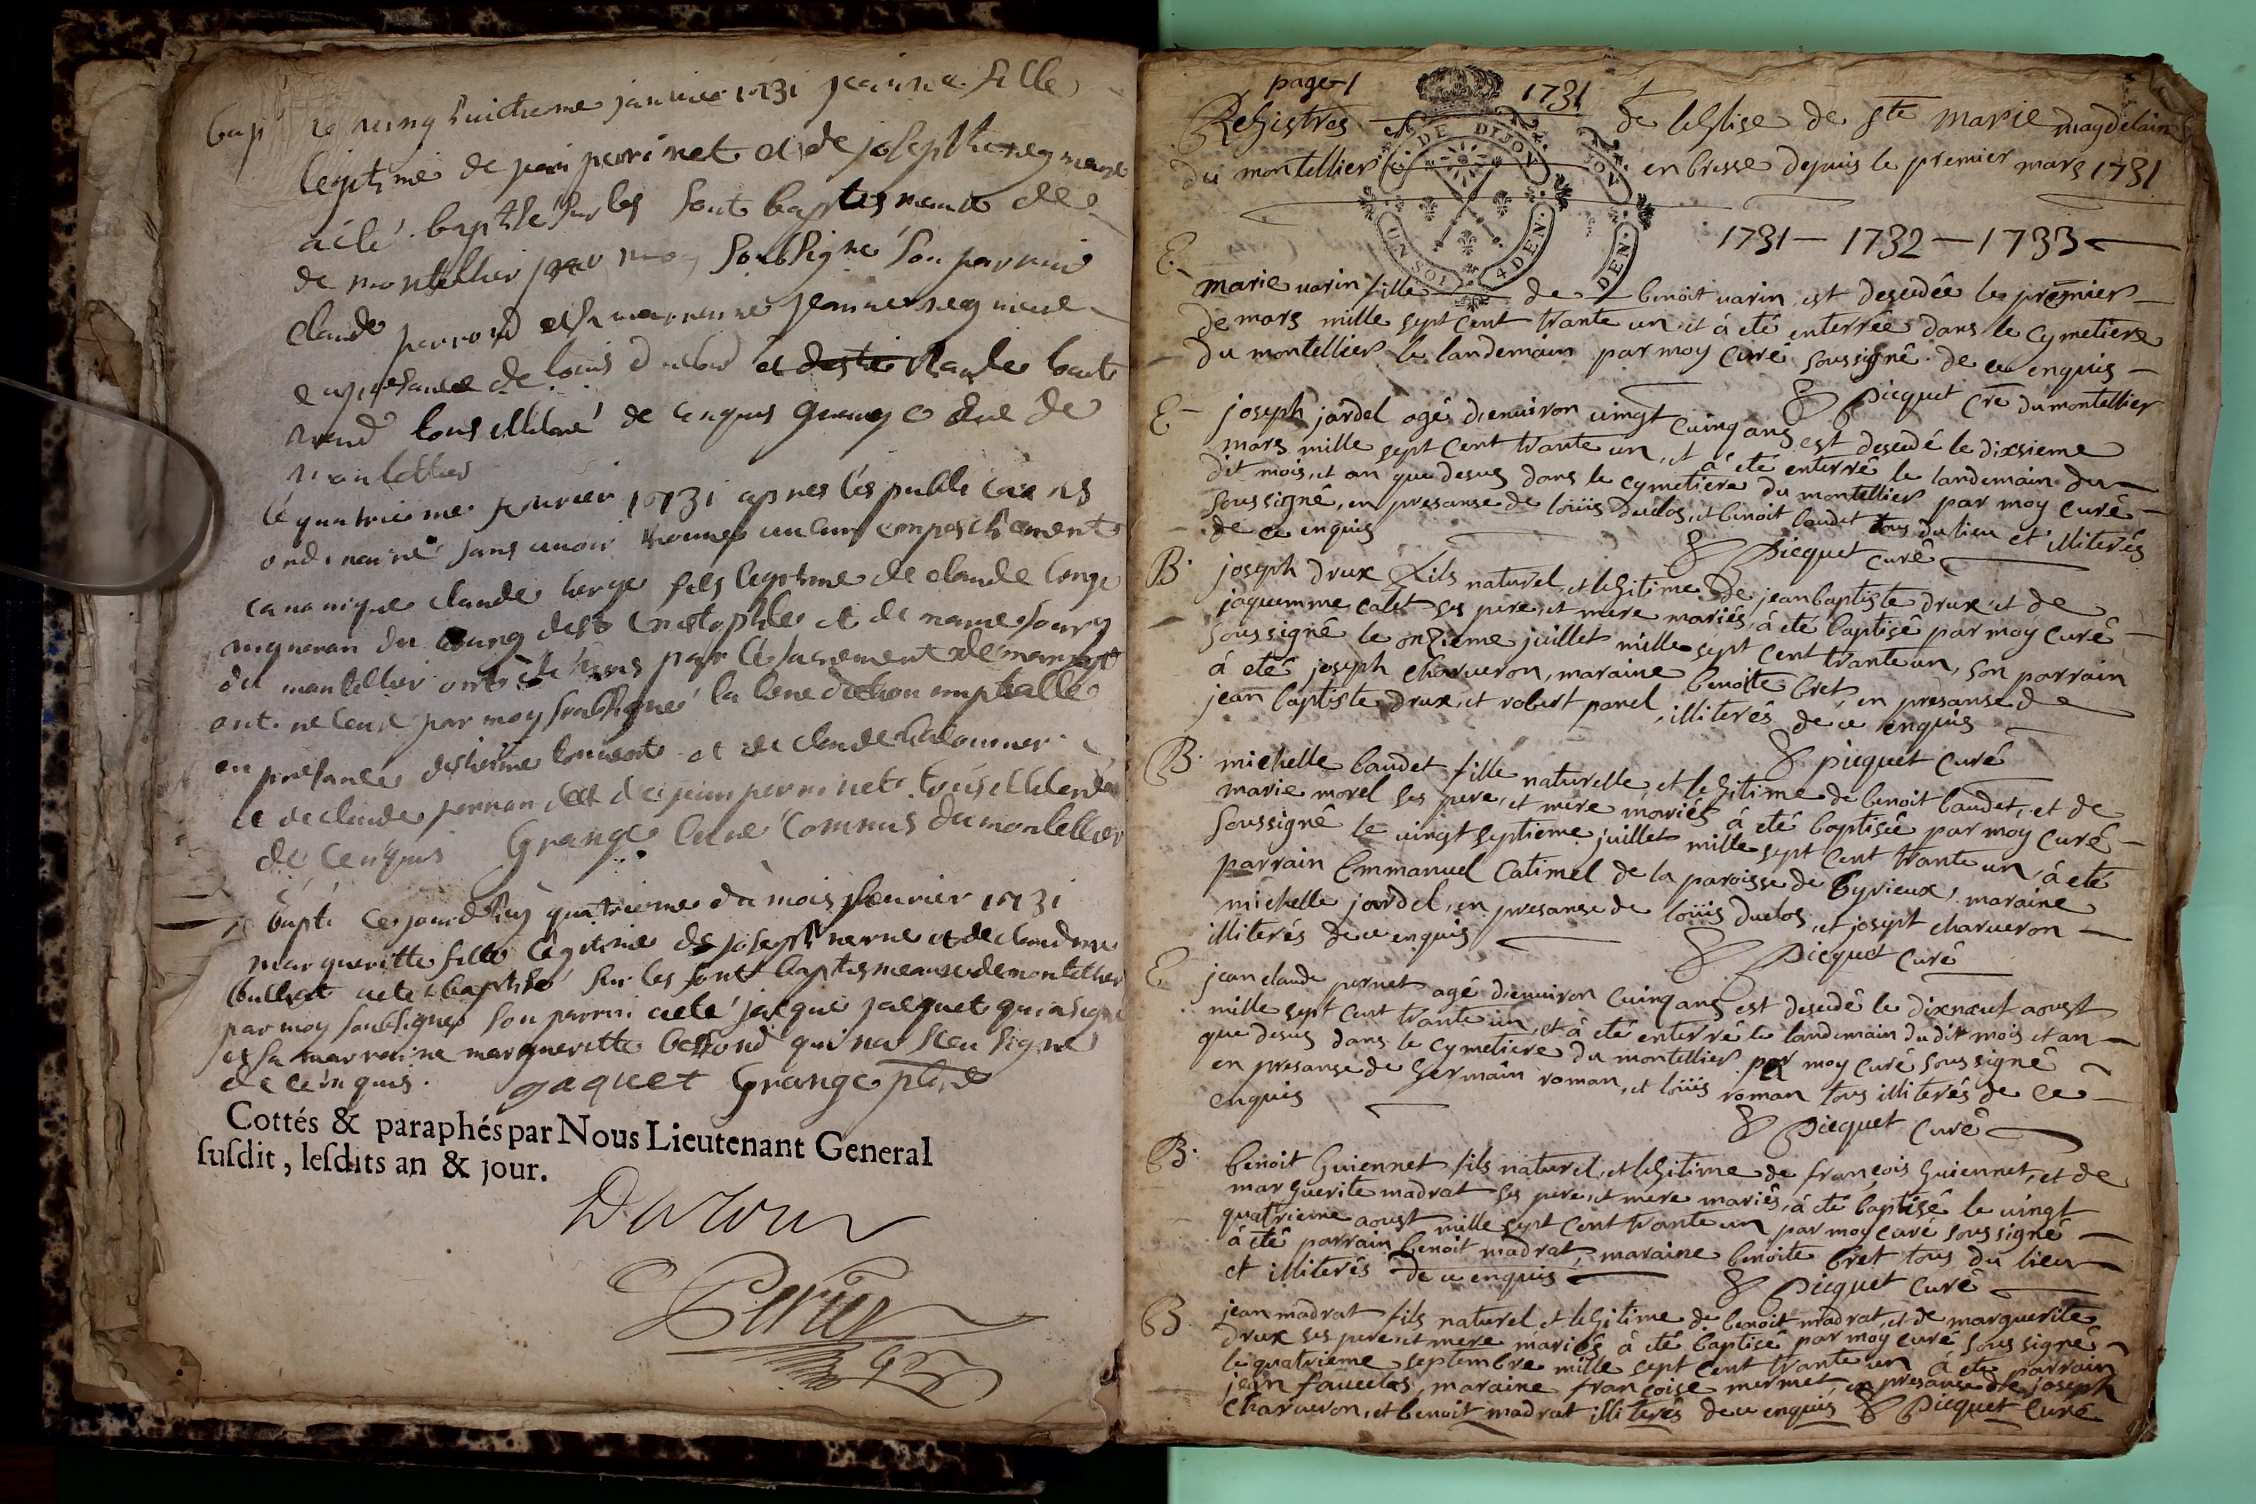 bap le ving huictieme janvier 1731 jeanne fille
legitime de jean perrinet et de
a été baptisé sur les font baptismaux de
de montellier par moy soubsigné son parrin
claude perroud et sa marreine jeanne
en presance de louis duclos et claude
tous illiteré de ce enquis Grange curé de
montellier
le quatrieme fevrier 1731 apres les publications
ordinaire sans avoir trouvé aucun empeschement
canonique claude fils legitime de claude
vigneron du bourg de st Cristophle et de marie
du montellier ont été unis par le sacrement de mariage
ont receu par moy soubsigné la benediction nuptialle
en presance destienne et de claude
et de claude et de jean perrinet tous illiterés
de ce enquis Grange curé commis du montellier
bapt. ce jourdhuy quatrieme du mois fevrier 1731
margueritte fille legitime de joseph et de claudine
a été baptisé sur les font baptismeaux de montellier
par moy soubsigné son parrin a eté jacque jacquet qui a signé
et sa marraine margueritte bessond qui na sceu signé
de ce enquis. jaquet Grange ptre
Cottés & paraphés par Nous Lieutenant General
susdit, lesdits an & jour.
page 1 1731
DE DIJON
UN SOL 4 DEN.
Registres de leglise de ste marie magdelaine
du montellier en bresse depuis le premier mars 1731
1731 — 1732 — 1733
E. marie varin fille de benoit varin est desedée le premier
de mars mille sept cent trante un et á eté enterrée dans le cymetiere
du montellier le landemain par moy curé soussigné de ce enquis
Picquet cre du montellier
E joseph jardel agé denviron vingt cuinq ans est desedé le dixsieme
mars mille sept cent trante un, et á eté enterré le landemain du
dit mois, et an que desus dans le cymetiere du montellier par moy curé
soussigné, en presanse de loüis duclos, et benoit baudet tous du lieu et illiterés
de ce enquis Picquet curé
B. joseph drux fils naturel, et legitime de jean baptiste drux et de
jaquemme calet ses pere, et mere mariés, á eté baptisé par moy curé
soussigné le onzieme juillet mille sept cent trante un, son parrain
á eté joseph charveron, maraine benoite bret, en presanse de
jean baptiste drux, et robert panel, illiterés de ce enquis
Picquet curé
B. michelle baudet fille naturelle et legitime de benoit baudet, et de
marie morel ses pere, et mere mariés á eté baptisée par moy curé
soussigné le vingt septieme juillet mille sept cent trante un, á eté
parrain Emmanuel Catimel de la paroisse de Cyrieux, maraine
michelle jardel, en presanse de loüis duclos, et josept charveron
illiterés de ce enquis Picquet curé
E jean claude pernet agé denviron cuinq ans est desedé le dixneuf aoust
mille sept cent trante un, et á eté enterré le landemain du dit mois et an
que desus dans le cymetiere du montellier par moy curé soussigné
en presanse de germain roman, et loüis roman tous illiterés de ce
enquis Picquet curé
B. benoit guiennet fils naturel, et legitime de françois guiennet, et de
marguerite madrat ses pere, et mere mariés, á eté baptisé le vingt
quatrieme aoust mille sept cent trante un par moy curé soussigné
á eté parrain benoit madrat, maraine benoite bret tous du lieu
et illiterés de ce enquis Picquet curé
B jean madrat fils naturel et legitime de benoit madrat, et de marguerite
drux ses pere, et mere mariés á eté baptisé par moy curé soussigné
le quatrieme septembre mille sept cent trante un á eté parrain
jean, maraine françoise mermet, en presanse de joseph
charveron, et benoit madrat illiterés de ce enquis Picquet curé